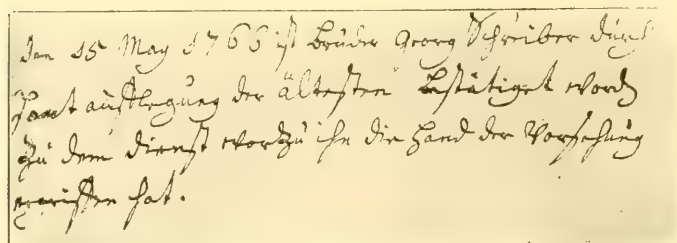 Den 15 May 1766 ist bruder Georg Schreiber durch
Hant aufflegung der ältesten bestätiget word
zu dem dienst wortzu ihn die Hand der Vorsehung
ergriffen hat.